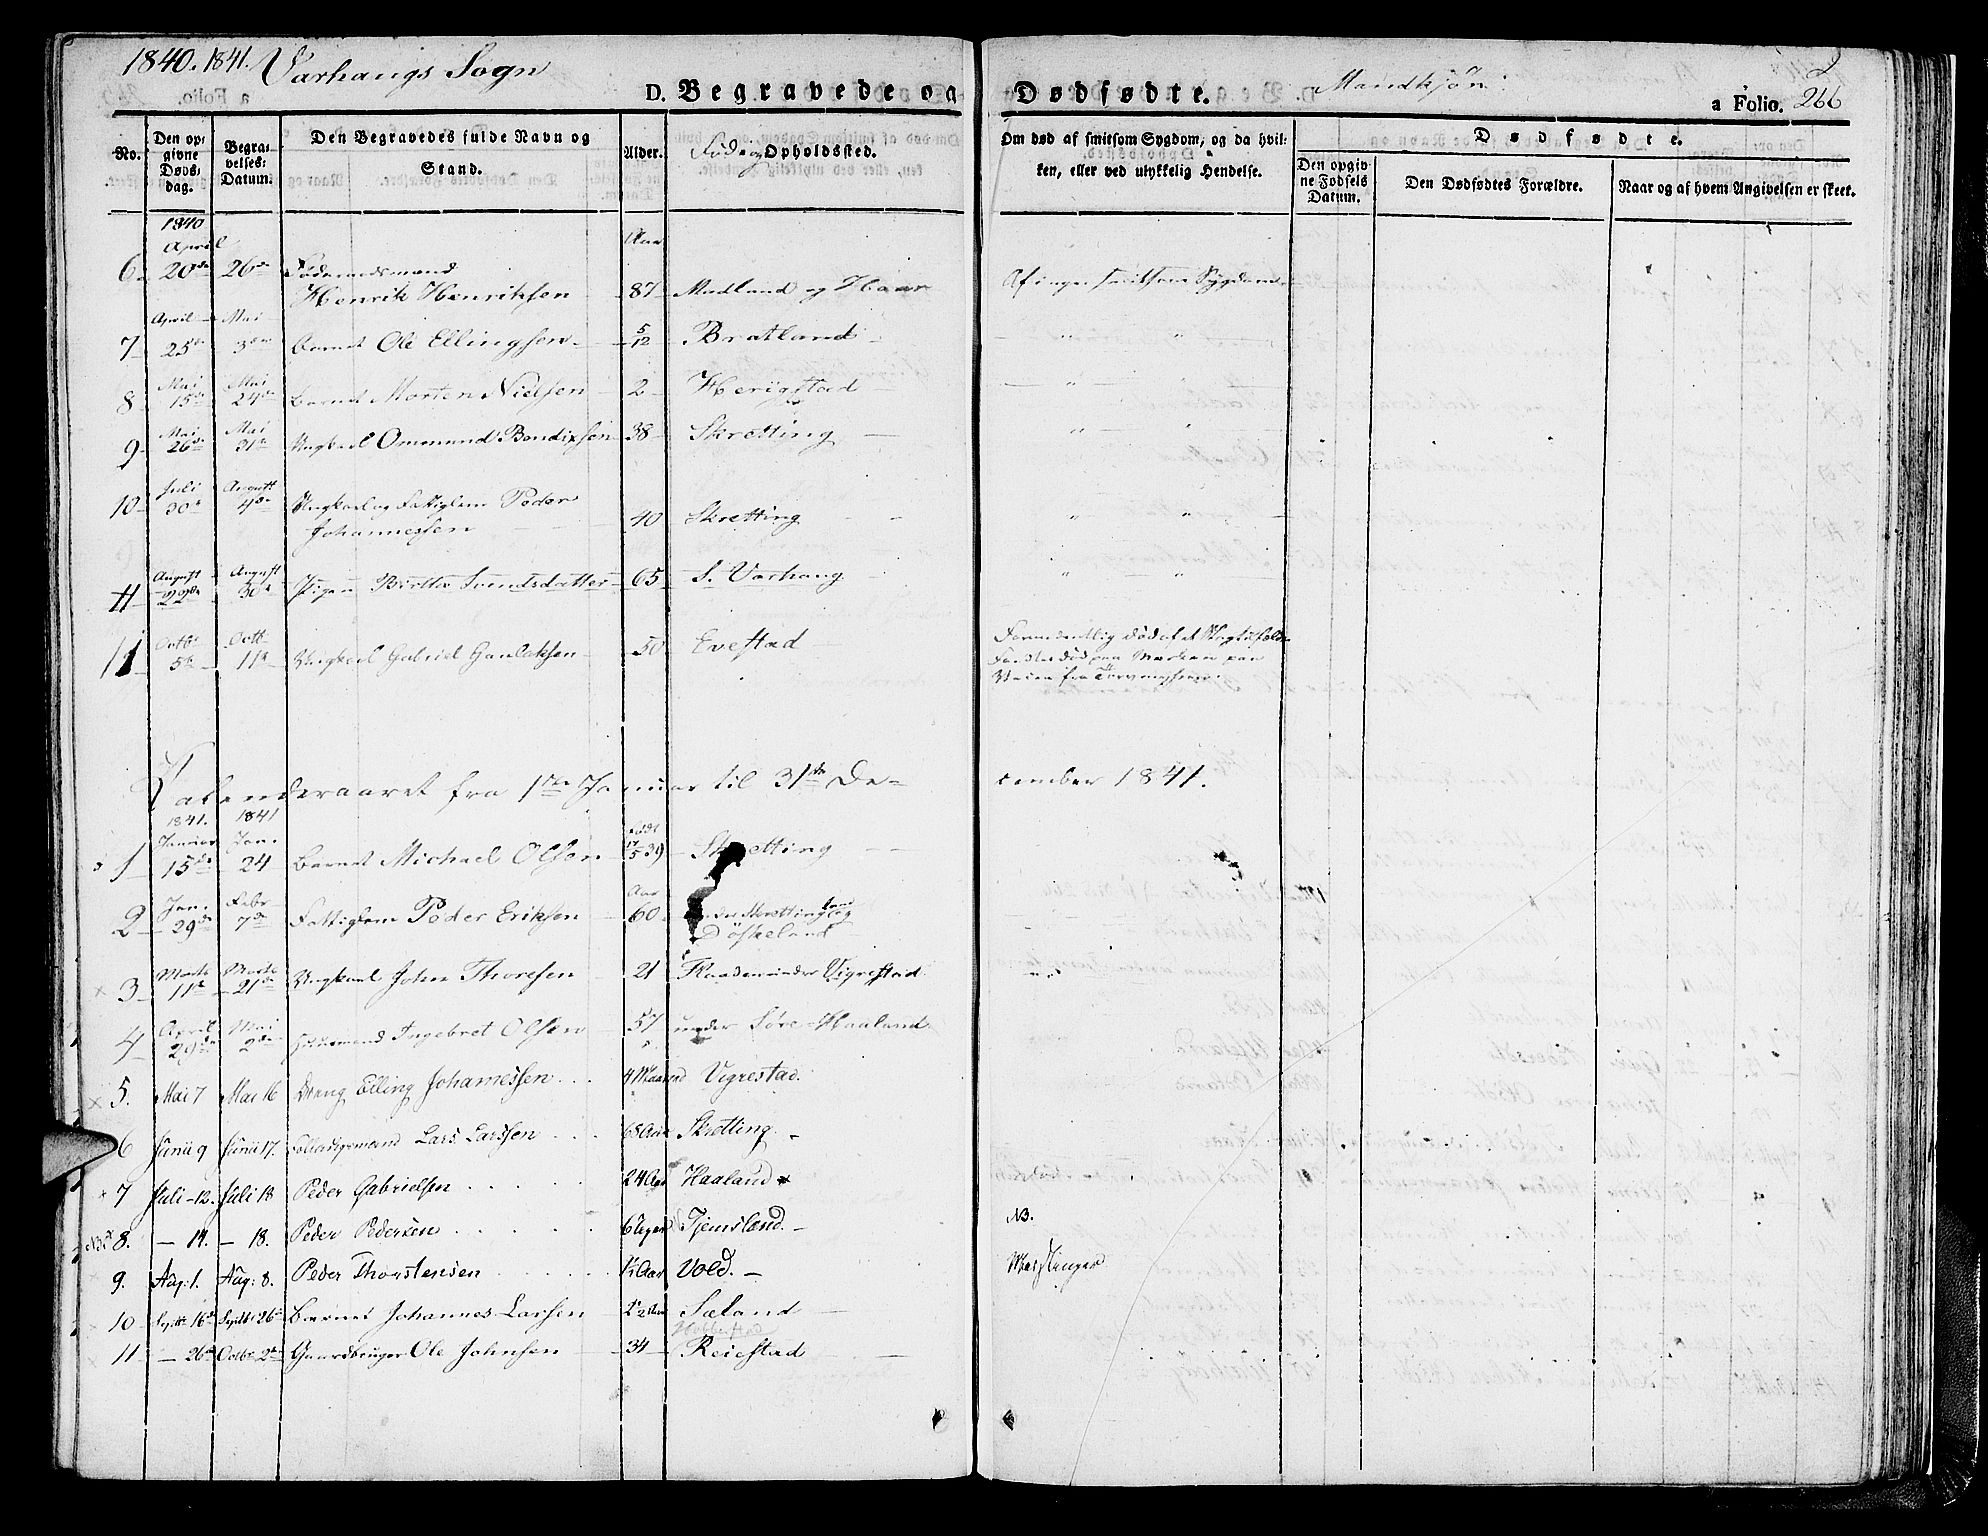 1840. 1841. Varhaugs Sogn
D. Begravede og Dødfødte. Mandkjøn. a Folio. 266
No. Den opgivne Dødsdag. Begravelses-Datum. Den Begravedes fulde Navn og Stand. Alder. Føde og Opholdssted. Om død af smitsom Sygdom, og da hvilken, eller ved ulykkelig Hendelse. Dødfødte.
Den opgivne Fødsels Datum. Den Dødfødtes Forældre. Naar og af hvem Angivelsen er skeet.
1840
April Aar
6 20de 26de Føderaadsmand
Henrik Henriksen 87 Madland og Haar Af ingen smitsom Sygdom
April Mai
7 25de 3die Barnet Ole Ellingsen 5/12 Bratland " "
Mai Mai
8 15de 24de Barnet Morten Nielsen 2 Herigstad " "
Mai Mai
9 26de 31te Ungkarl Ommund Bendixsen 38 Skretting " "
Juli August
10 30te 4de Ungkarl og Fattiglem Peder
Johannessen 40 Skretting " "
August August
11 22de 30te Pigen Birthe Svendsdatter 65 S. Varhaug " "
Octb. Octb.
11 5te 11te Ungkarl Gabriel Gunlaksen 50 Evestad Formodentlig død af et
død paa Marken paa
Veien fra
Kalenderaaret fra 1ste Januar til 31te December 1841.
1841. 1841
Januar Jan. Født
1 15de 24 Barnet Michael Olsen 17/5 39 Skretting
Jan. Febr. Aar
2 29de 7de Fattiglem Peder Eriksen 60 under Skretting og
Døskeland
Marts Marts
3 11te 21de Ungkarl John Thoresen 21 under Vigrestad
April Mai
4 29de 2den Huusmand Ingebret Olsen 57 under Søre-Haaland
5. Mai 7 Mai 16 Dreng Elling Johannessen 4 Maaned Vigrestad.
6 Junii 9 Junii 17. Lars Larssen 65 Aar Skretting.
7 Juli 12. Juli 18 Peder Gabrielsen 24 Aar Haaland
NB. 8. — 14. — 18. Peder Pedersen 6 Uger Tjemsland. NB.
9. Aug: 1. Aug: 8. Peder Thorstensen ½ Aar Vold.
10 Septb. 16de Septb. 26de Barnet Johannes Larsen Sæland
Hobberstad
11 — 26de Octbr. 2den Gaardbruger Ole Johnsen 34 Reiestad